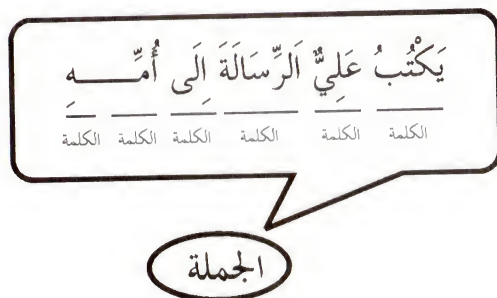 يَكْتُبُ عَلِيٌّ اَلرِّسَالَةَ إِلَى أُمِّـــــهِ
الكلمة الكلمة الكلمة الكلمة الكلمة الكلمة
الجملة